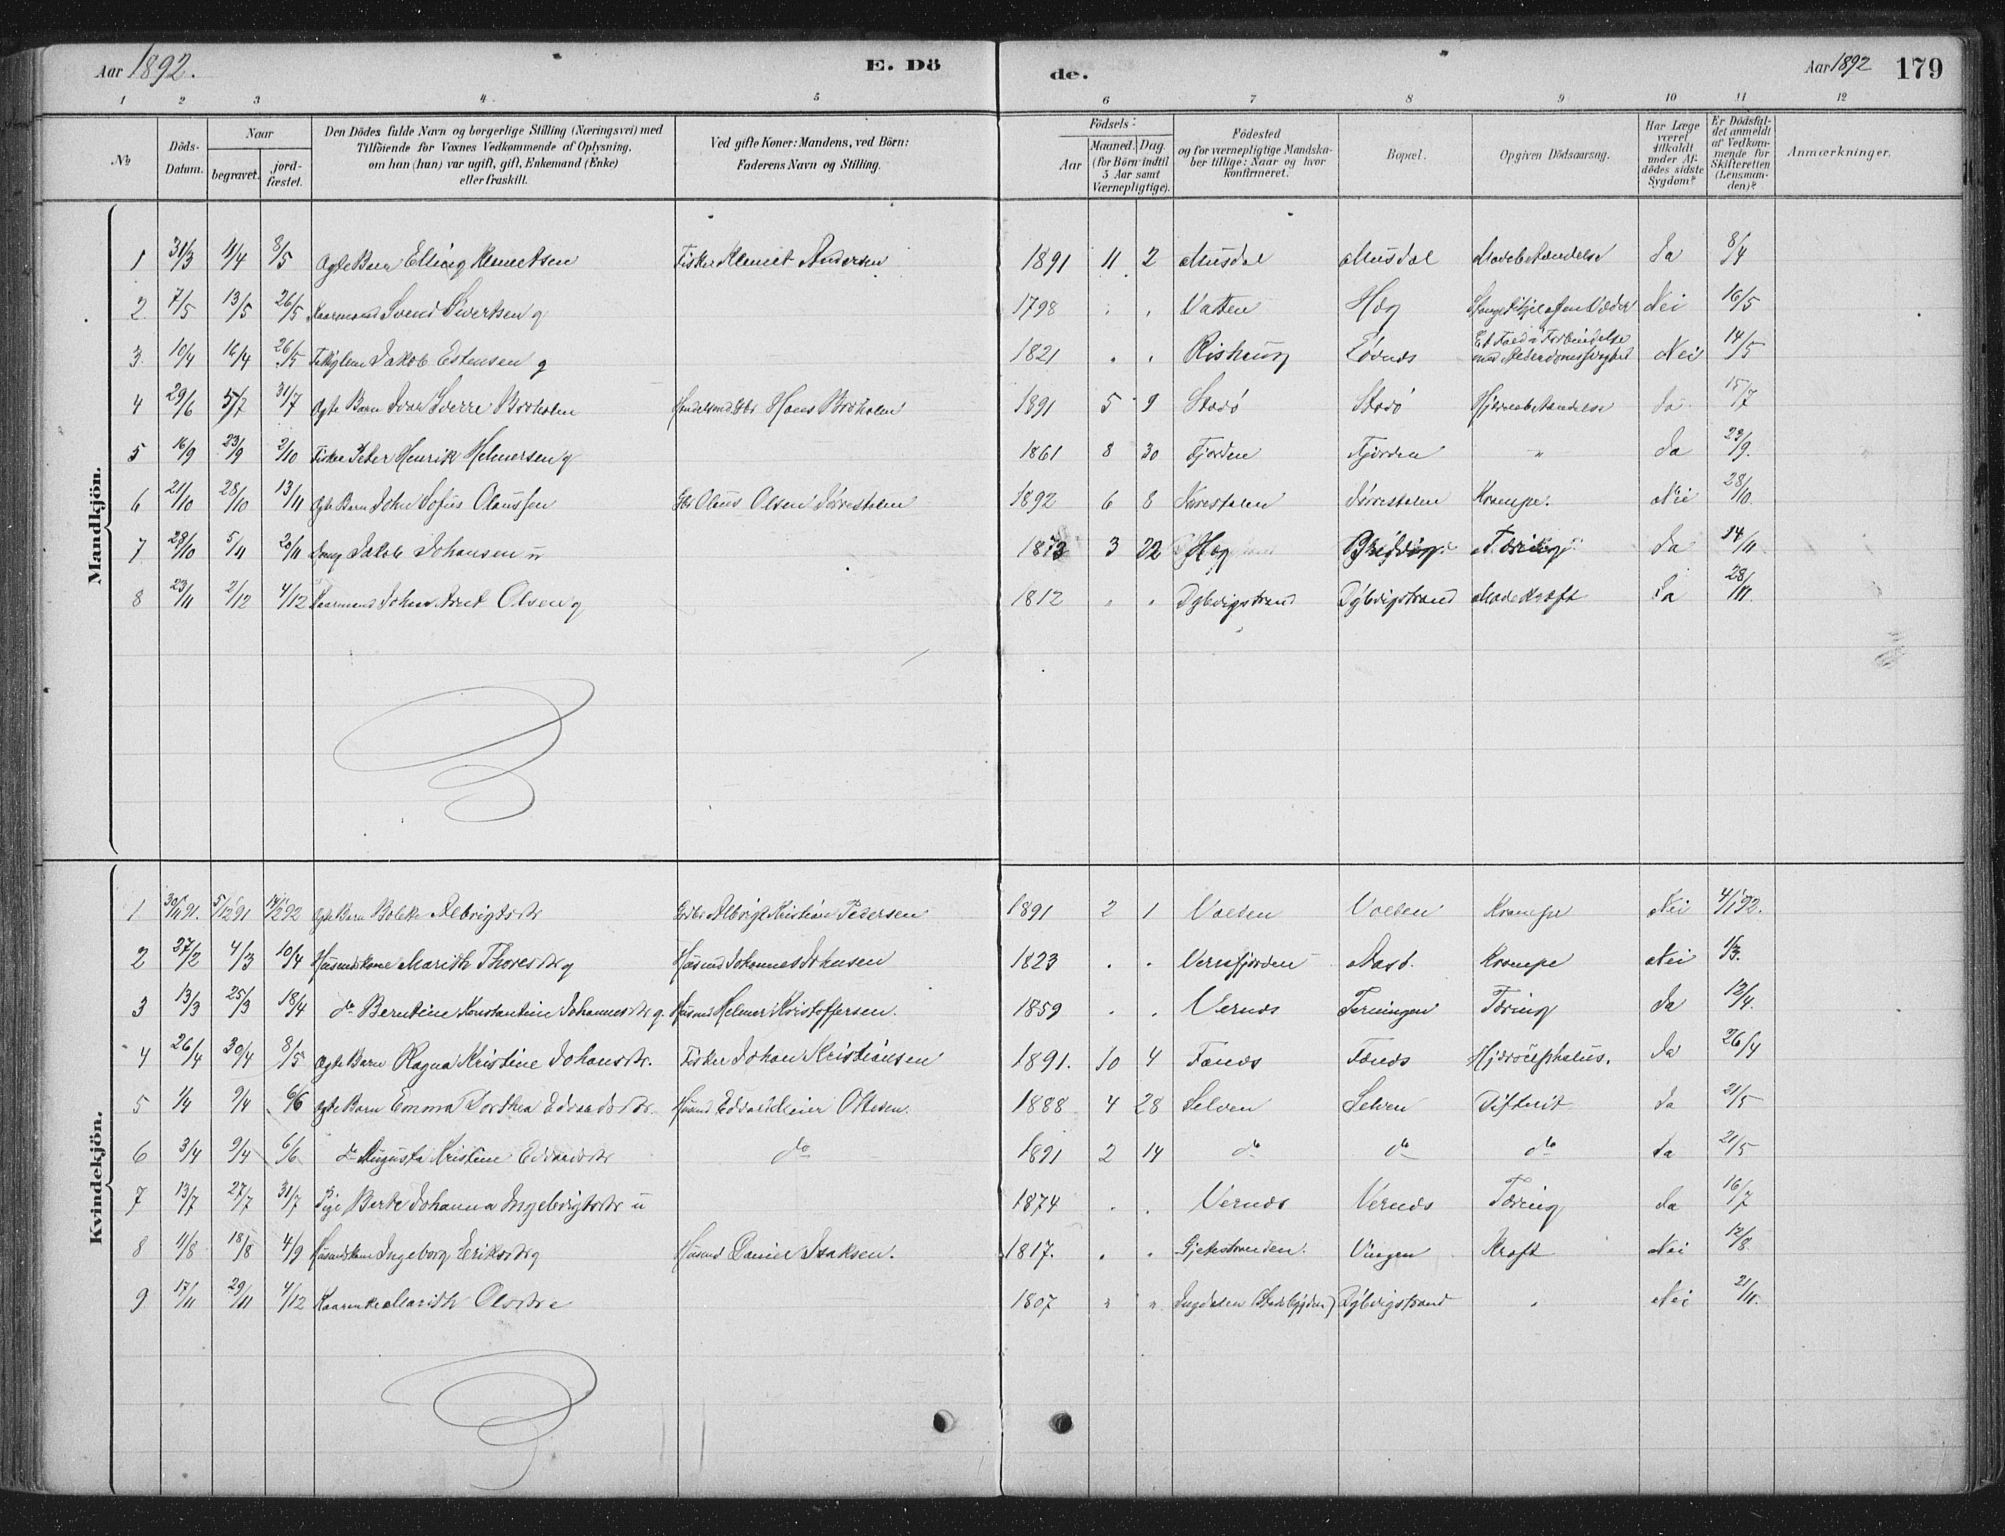 Aar 1892.
E. Dö
de.
Aar 1892
179
1 2 3 4 5 6 7 8 9 10 11 12
No
Döds-Datum.
Naar
begravet.
jord-fæstet.
Den Dödes fulde Navn og borgerlige Stilling (Næringsvei) med
Tilföiende for Voxnes Vedkommende af Oplysning,
om han (hun) var ugift, gift, Enkemand (Enke)
eller fraskilt.
Ved gifte Koner: Mandens, ved Börn:
Faderens Navn og Stilling.
Födsels:
Aar
Maaned. Dag
(for Börn indtil
5 Aar samt
Værnepligtige).
Födested
og for værnepligtige Mandska-
ber tillige: Naar og hvor
konfirmeret.
Bopæl.
Opgiven Dödsaarsag.
Har Læge
været
tilkaldt
under Af-
dödes sidste
Sygdom?
Er Dödsfal-
det anmeldt
af Vedkom-
mende for
Skifteretten
(Lensman-
den)?
Anmærkninger.
Mandkjön.
1 31/3 11/4 8/5 Ægte Barn Elling Klemetsen Fisker Klemet Andersen 1891 11 2 Musdal Musdal Ja 8/4
2 7/5 13/5 26/5 Kaarmand Svend Siverksen g 1798 " " Vatten Hæg Nei 16/5
3 10/4 16/4 26/5 Jakob Estensen g 1821 " " Rishaug Nei 14/5
4 29/6 5/7 31/7 Ægte Barn Ivar Sverre Broholm Hans Broholm 1891 5 9 Storö Storö Hjernebetændelse Ja 15/7
5 16/9 23/9 2/10 Fisker Peter Henrik Helmersen g 1861 8 30 Fjorden Fjorden " Ja 23/9
6 21/10 28/10 13/11 Ægte Barn John Sofus Olaussen Gbr Olaus Olsen 1892 6 8 Krampe. Nei 28/10
7 28/10 5/11 20/11 Jakob Johansen u 1873 3 22 Hæg Tæring Ja 14/11
8 23/11 2/12 4/12 Kaarmand Johan Arnt Olsen g 1812 " " Dybvigstrand Dybvigstrand Ja 28/11
Kvindekjön.
1 30/11 91. 5/12 91 14/2 92 Ægte Barn Albrigtsdtr Albrigt Kristian Pedersen 1891 2 1 Valsen Valsen Krampe Nei 4/1 92.
2 27/2 4/3 10/4 Husmdskone Marith Thoresdtr g Husmd Johannes Johnsen 1823 " " Vernfjorden Krampe Nei 1/3.
3 13/3 25/3 18/4 do Berntine Konstantine Johannesdtr g. Husmd Helmer Kristoffersen. 1859 " " Vernæs Terningen Tæring Ja 12/4.
4 26/4 30/4 8/5 Ægte Barn Ragna Kristine Johansdtr. Fisker Johan Kristiansen 1891. 10 4 Hydrocephalus. Ja 26/4
5 1/4 9/4 6/6 Ægte Barn Emma Dorthea Edvardsdtr Husmd Edvard Meier Ottesen. 1888 4 28 Selven Selven Difterit Ja 21/5
6 3/4 9/4 6/6 do Augusta Kristine Edvardsdtr do 1891 2 14 do do do Ja 21/5
7 13/7 27/7 31/7 Pige Berte Johanna Ingebrigtsdtr u 1874 " " Vernæs Vernæs Tæring Ja 16/7
8 11/8 18/8 4/9 Ingeborg Eriksdtr g Husmd Daniel Isaksen. 1817. " " Vingen Kræft Nei 12/8.
9 17/11 29/11 4/12 Kaarenke Marith Olsdtr e 1807 " " Dybvigstrand " Nei 21/11.